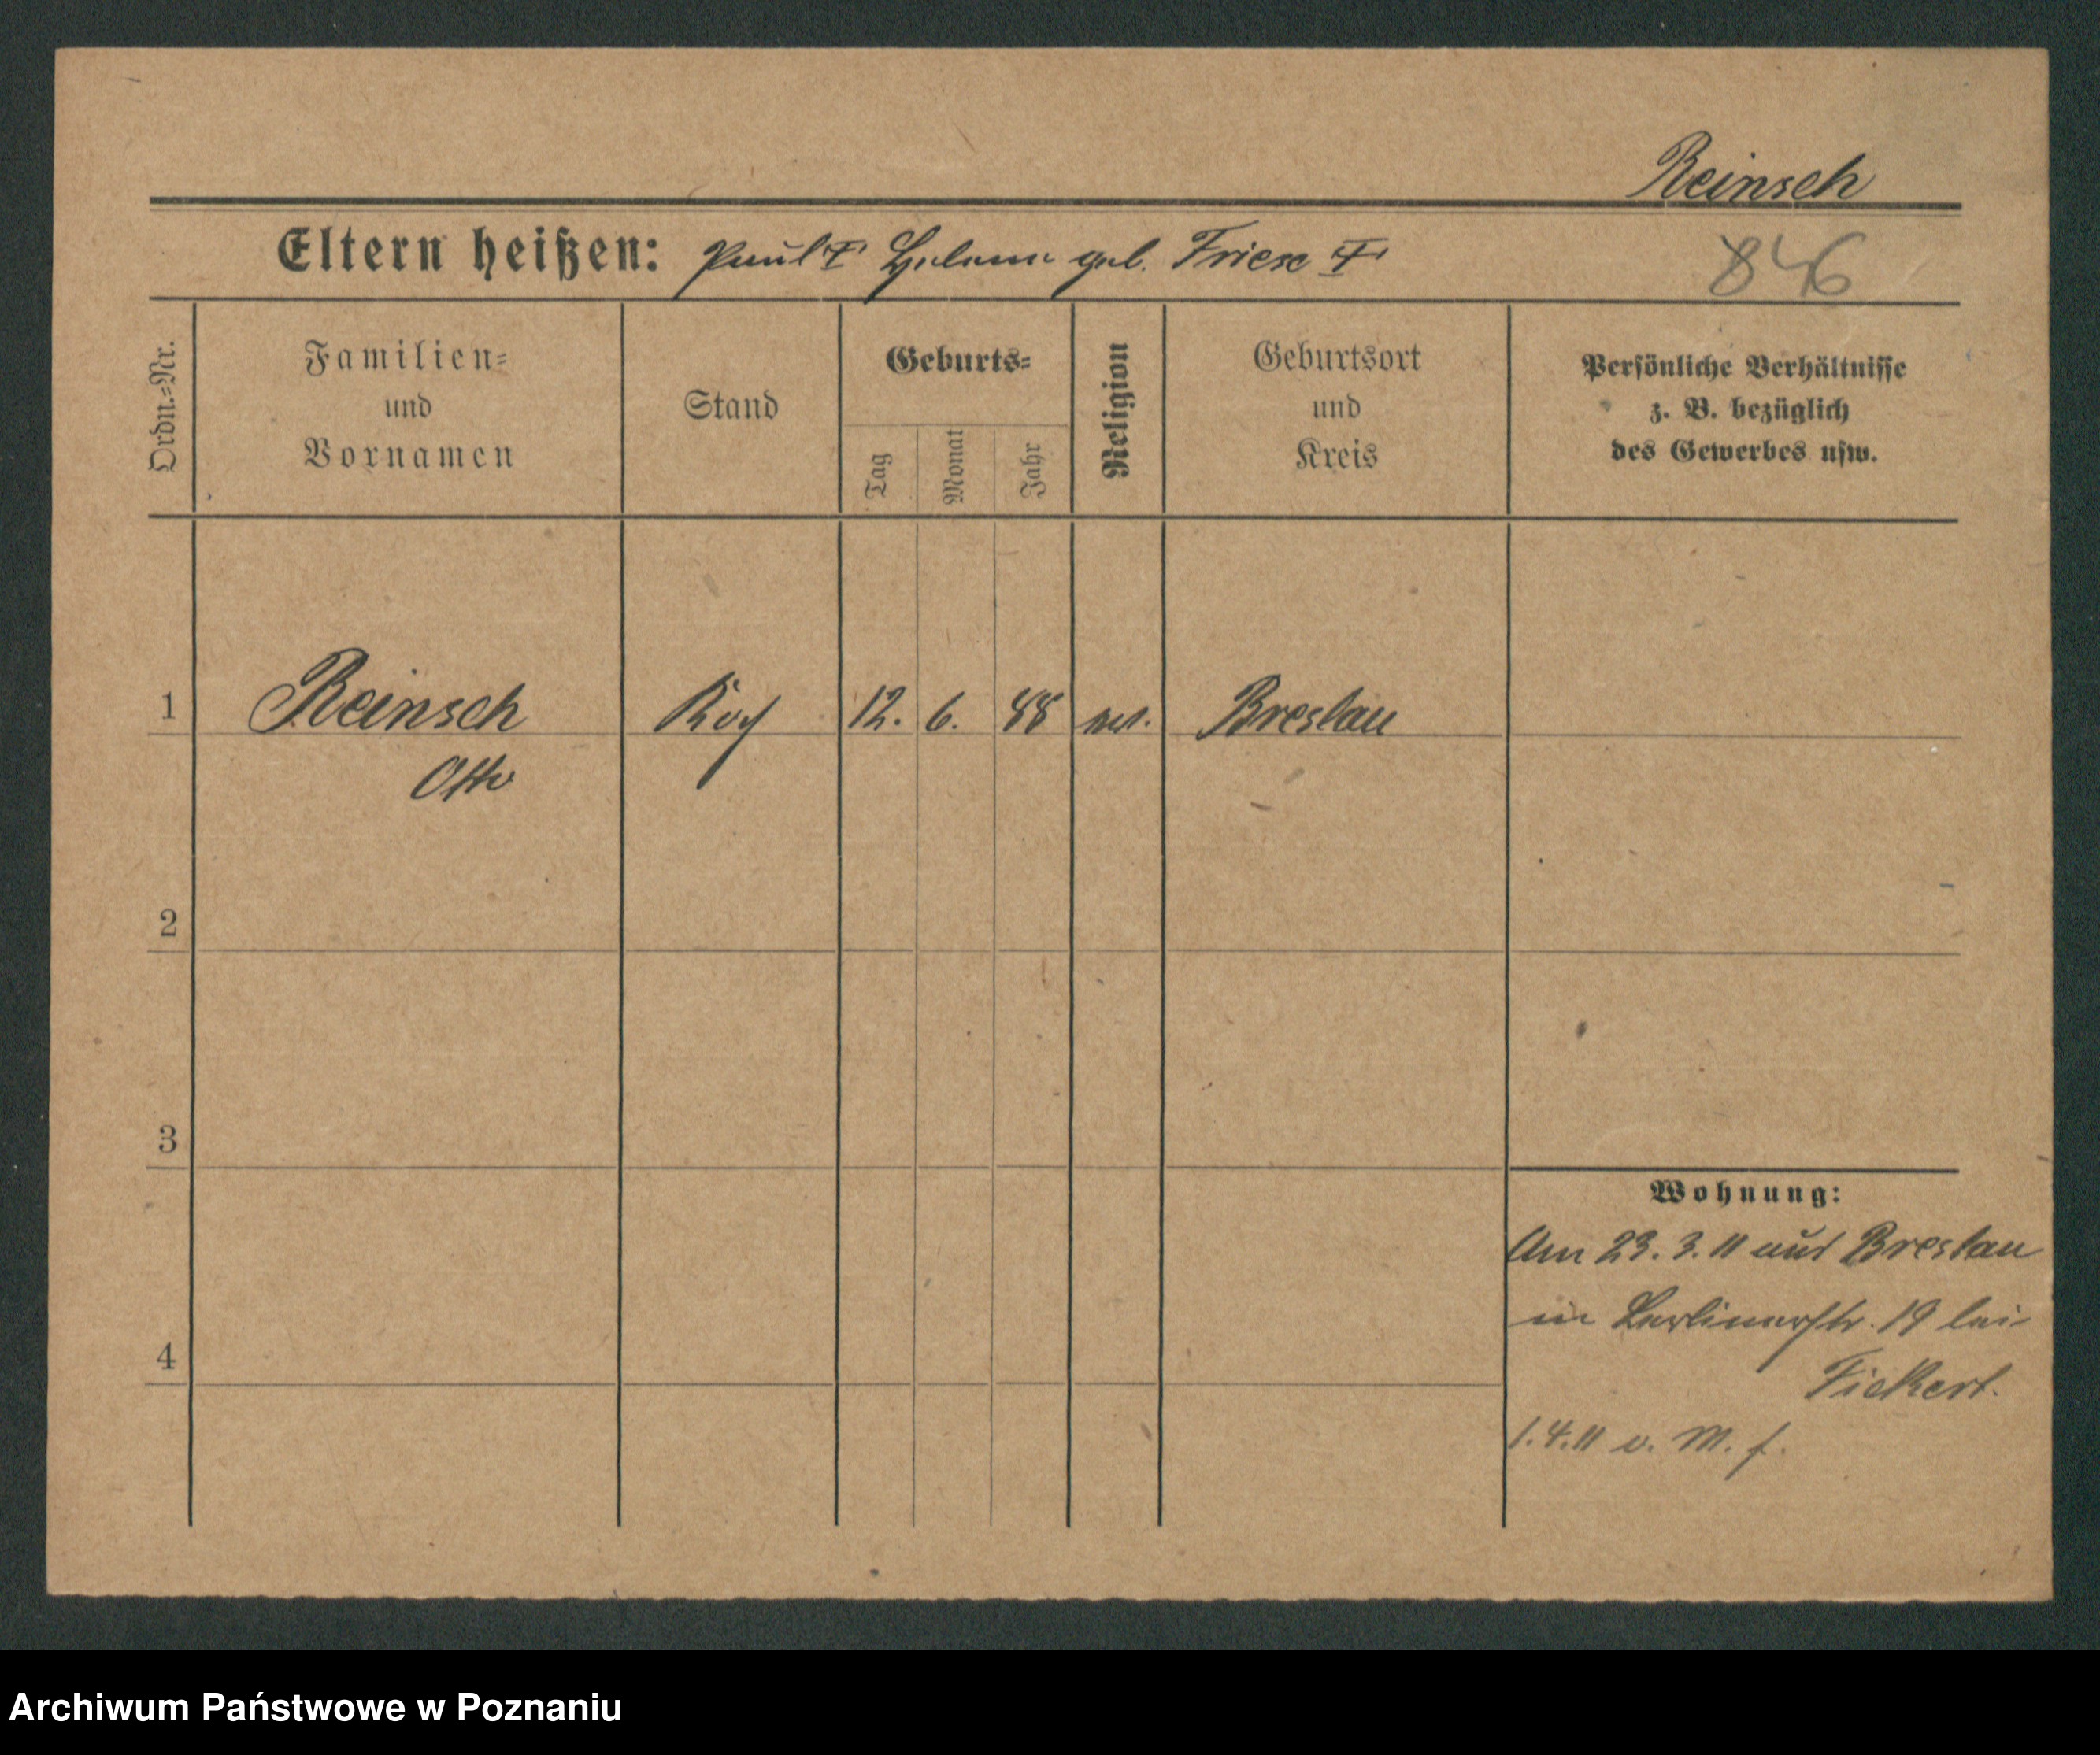 Reinsch
Eltern heißen: Paul † Helene geb. Friese †
846
Ordn.-Nr.
Familien-
und
Vornamen
Stand
Geburts-
Tag
Monat
Jahr
Religion
Geburtsort
und
Kreis
Persönliche Verhältnisse
z. B. bezüglich
des Gewerbes usw.
1 Reinsch Koch 12. 6. 88 Breslau
Otto
2
3
Wohnung:
Am 23. 3. 11 aus Breslau
in Berlinerstr. 19 bei
Fickert.
4
1.4.11 v. M. f.
Archiwum Państwowe w Poznaniu